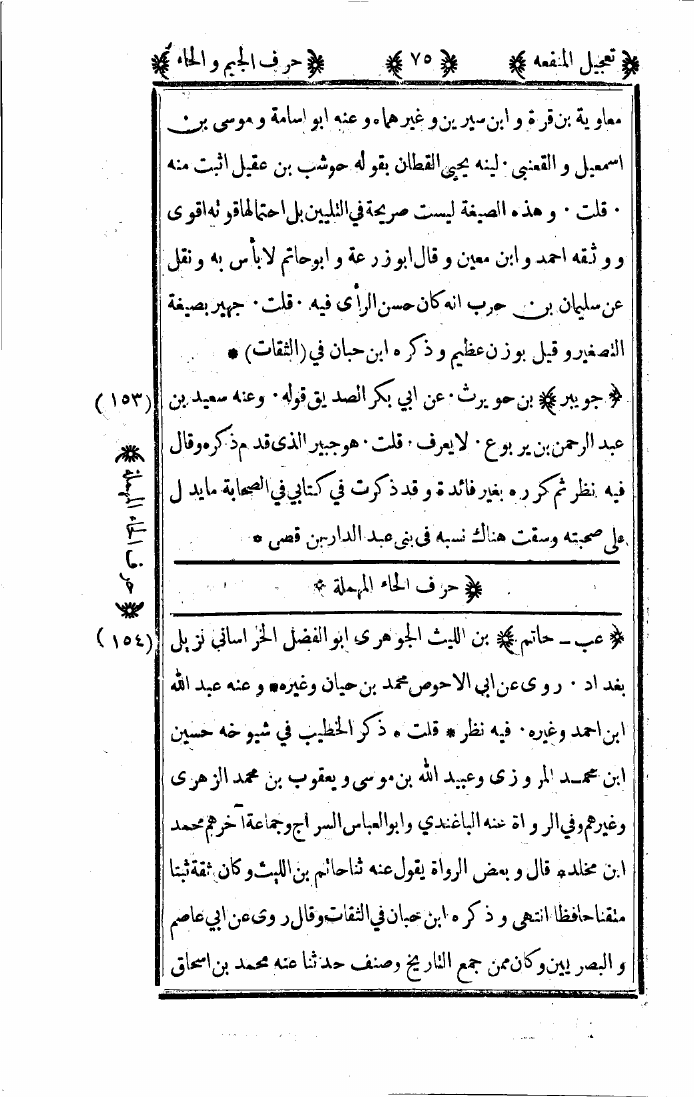 ﴿ تعجيل المنفعه ﴾ ﴿ ٧٥ ﴾ ﴿ حرف الجيم و الحاء ﴾
معاوية بن قرة و ابن سيرين و غيرهما ٠ و عنه ابو اسامة و موسى بن
اسمعيل و القعنبي ٠ لينه يحيى القطان بقوله حوشب بن عقيل اثبت منه
٠ قلت ٠ و هذه الصيغة ليست صريحة في التليين بل احتمالها قوته اقوى
و وثقه احمد و ابن معين و قال ابو زرعة و ابو حاتم لا بأس به و نقل
عن سليمان بن حرب انه كان حسن الرأى فيه ٠ قلت ٠ جهير بصيغة
التصغير و قيل بوزن عظيم و ذكره ابن حبان في (الثقات) *
﴿ جويبر ﴾ بن حويرث ٠ عن ابي بكر الصديق قوله ٠ وعنه سعيد بن (١٥٣)
عبد الرحمن بن يربوع ٠ لا يعرف ٠ قلت ٠ هو جبير الذى قدم ذكره وقال
فيه نظر ثم كرره بغير فائدة و قد ذكرت في كتابي في الصحابة ما يدل
على صحبته وسقت هناك نسبه فى بنى عبد الدار بن قصى *
﴿ حرف الحاء المهملة ﴾
﴿ حرف الحاء المهملة ﴾
﴿ عب ــ حاتم ﴾ بن الليث الجوهرى ابو الفضل الخراساني نزيل (١٥٤)
بغداد ٠ روى عن ابي الاحوص محمد بن حيان وغيره * و عنه عبد الله
ابن احمد وغيره ٠ فيه نظر * قلت * ذكر الخطيب في شيوخه حسين
ابن محمد المروزى وعبيد الله بن موسى و يعقوب بن محمد الزهرى
وغيرهم وفي الرواة عنه الباغندي وابو العباس السراج و جماعة آخرهم محمد
ابن مخلد * قال و بعض الرواة يقول عنه ثنا حاتم بن الليث و كان ثقة ثبتا
متقنا حافظا انتهى و ذكره ابن حبان في الثقات وقال روى عن ابي عاصم
و البصريين و كان ممن جمع التاريخ وصنف حدثنا عنه محمد بن اسحاق